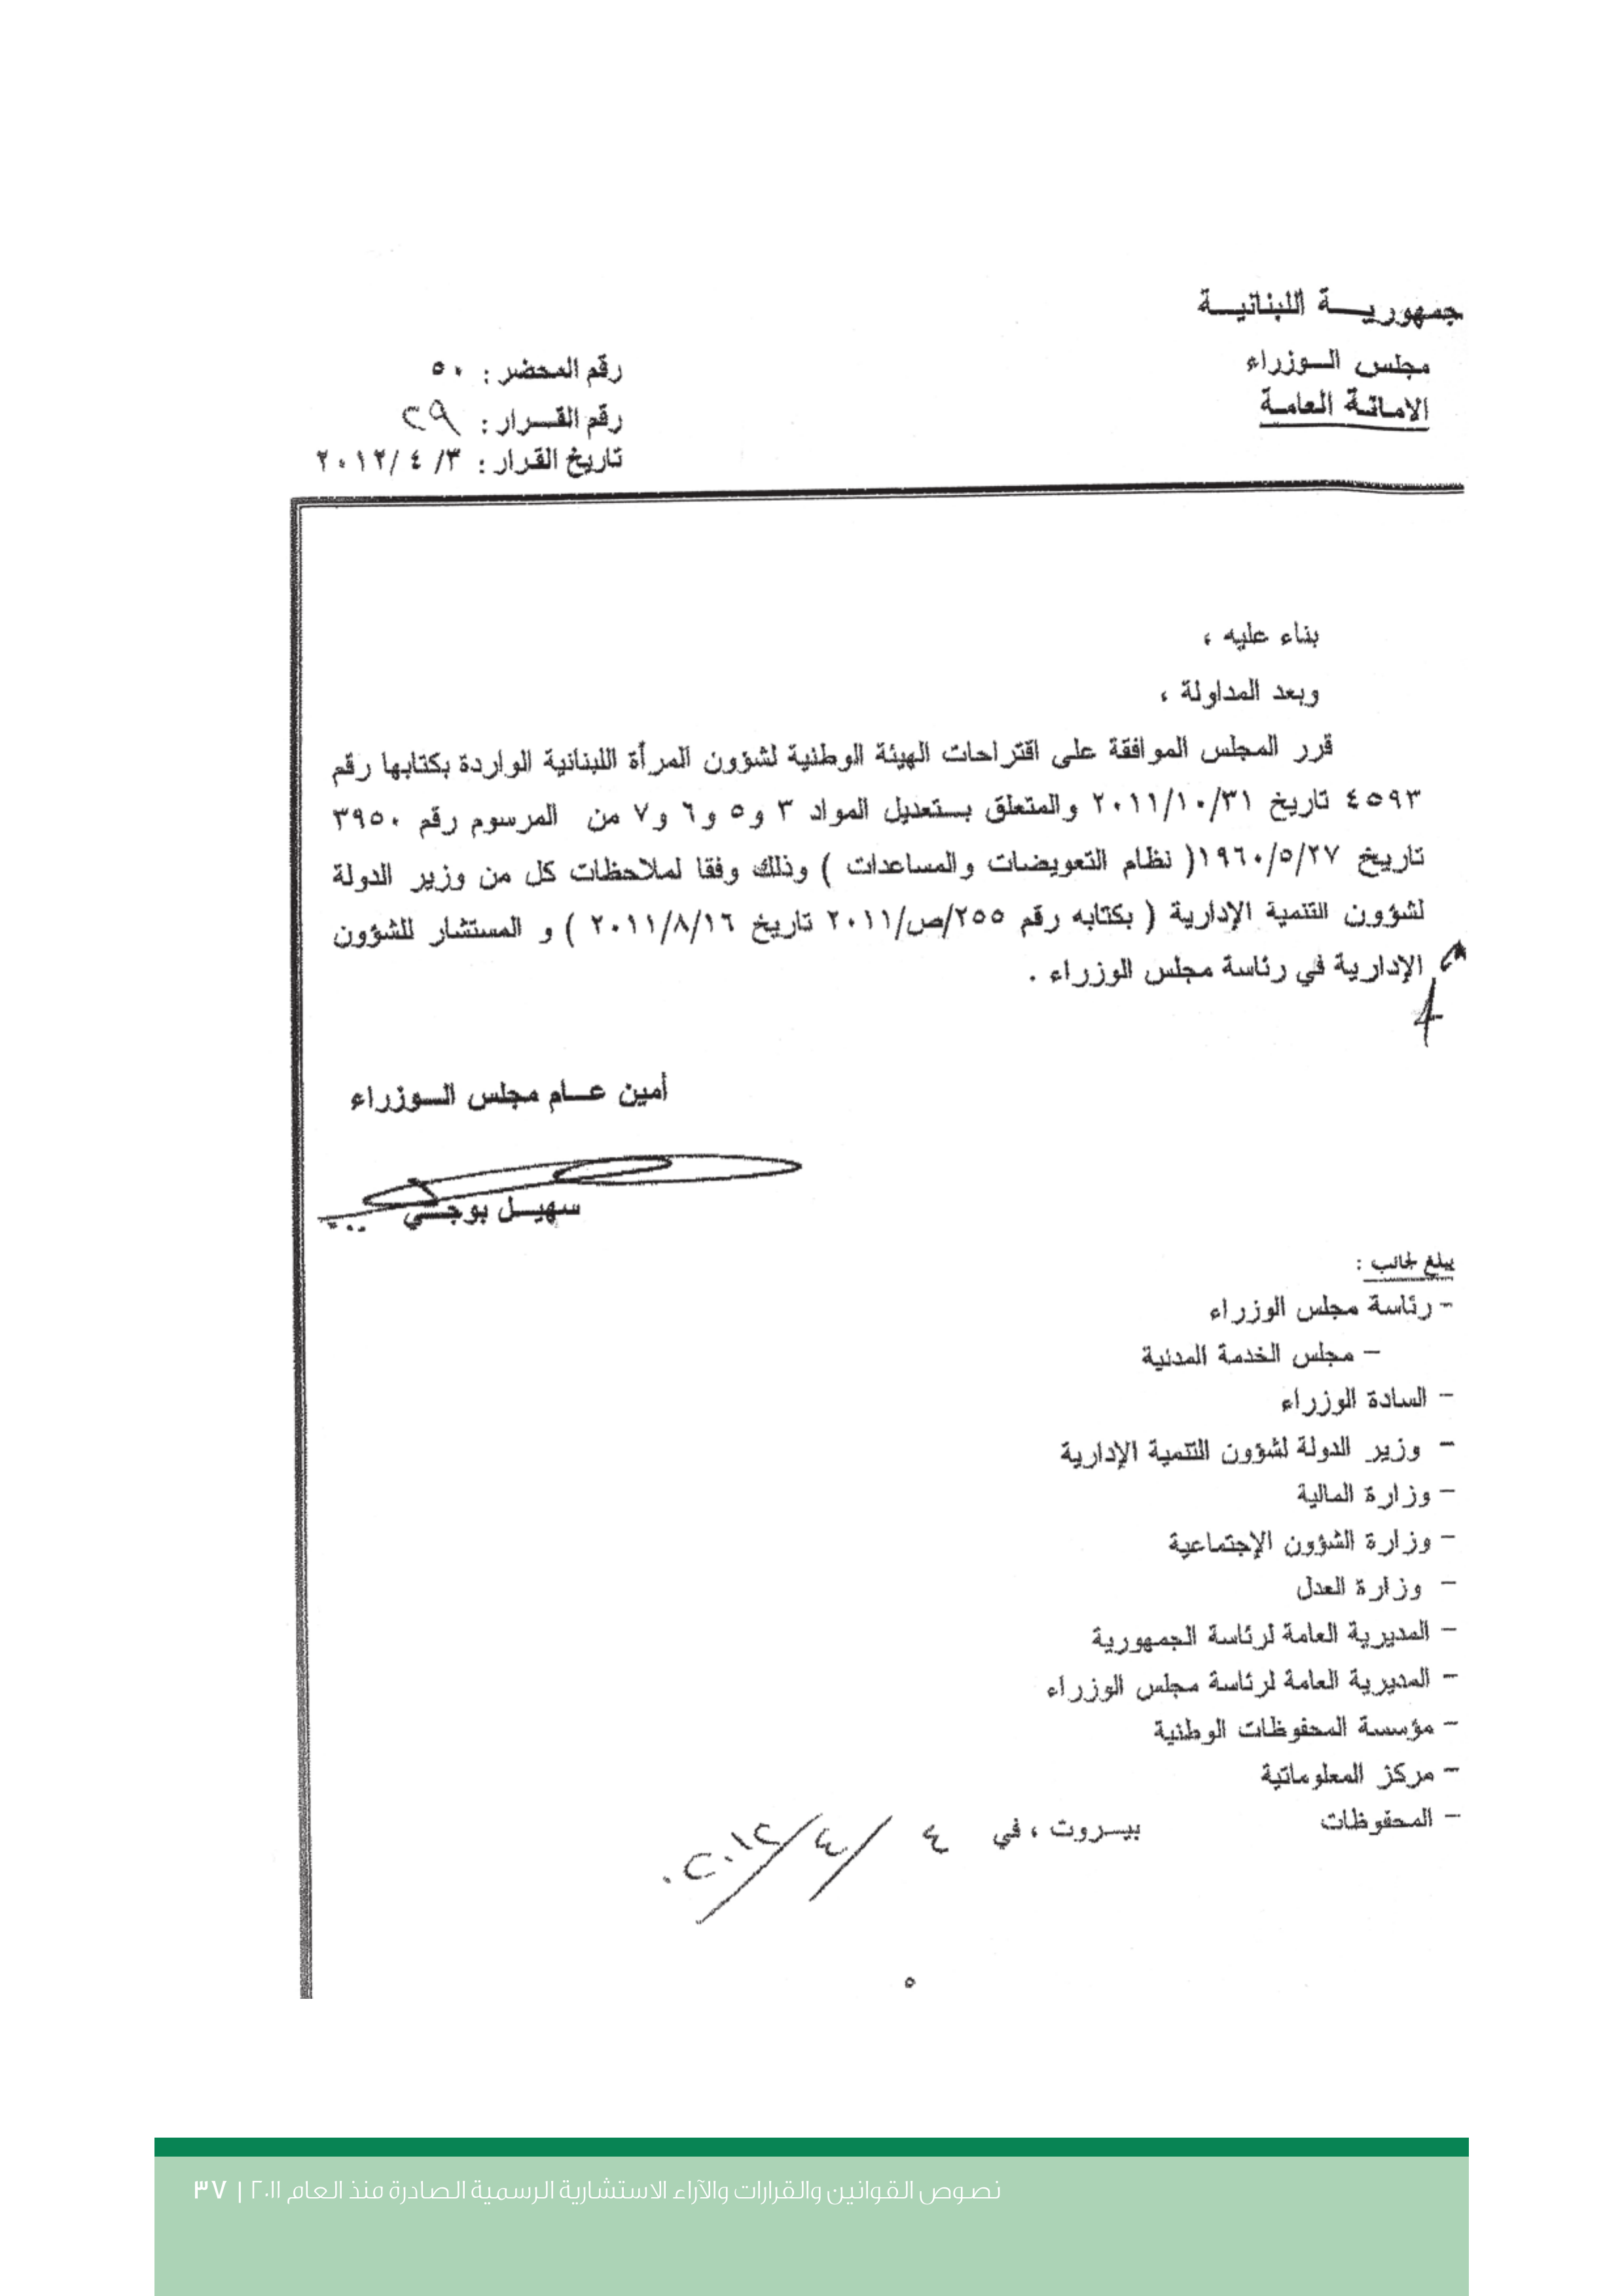 جمهوريـــة اللبنانيـــة
مجلس الـوزراء
الامانة العامة
رقم المحضر : ٥٠
رقم القـرار : ٢٩
تاريخ القرار : ٣/ ٤ /٢٠١٢
بناء عليه ،
وبعد المداولة ،
قرر المجلس الموافقة على اقتراحات الهيئة الوطنية لشؤون المرأة اللبنانية الواردة بكتابها رقم
٤٥٩٣ تاريخ ٢٠١١/١٠/٣١ والمتعلق بـتعديل المواد ٣ و٥ و٦ و٧ من المرسوم رقم ٣٩٥٠
تاريخ ١٩٦٠/٥/٢٧( نظام التعويضات والمساعدات ) وذلك وفقا لملاحظات كل من وزير الدولة
لشؤون التنمية الإدارية ( بكتابه رقم ٢٥٥/ص/٢٠١١ تاريخ ٢٠١١/٨/١٦ ) و المستشار للشؤون
الإدارية في رئاسة مجلس الوزراء .
أمين عـــام مجلس الــوزراء
سهيـــل بوجـــي
يبلغ لجانب :
- رئاسة مجلس الوزراء
- مجلس الخدمة المدنية
- السادة الوزراء
- وزير الدولة لشؤون التنمية الإدارية
- وزارة المالية
- وزارة الشؤون الإجتماعية
- وزارة العدل
- المديرية العامة لرئاسة الجمهورية
- المديرية العامة لرئاسة مجلس الوزراء
- مؤسسة المحفوظات الوطنية
- مركز المعلوماتية
- المحفوظات
بيــروت ، في ٤ / ٤ / ٢٠١٢ .
٥
نصوص القوانين والقرارات والآراء الاستشارية الرسمية الصادرة منذ العام ٢٠١١ | ٣٧